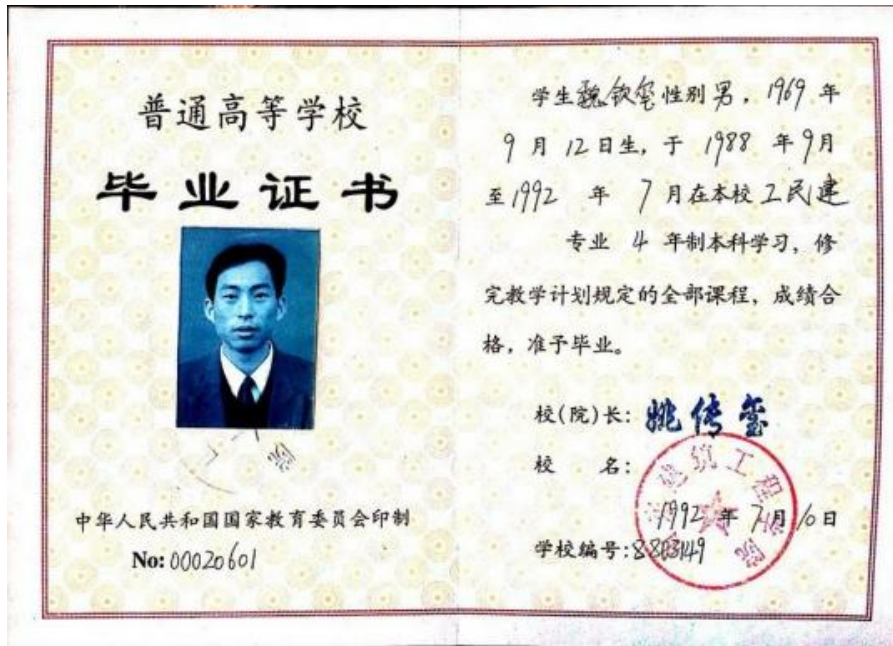 普通高等学校
毕业证书
中华人民共和国国家教育委员会印制
No: 00020601
学生魏钦玺性别男，1969年
9月12日生，于1988年9月
至1992年7月在本校工民建
专业4年制本科学习，修
完教学计划规定的全部课程，成绩合
格，准予毕业。
校(院)长：姚传玺
校名：
建筑工程学院
1992年7月10日
学校编号：8803149